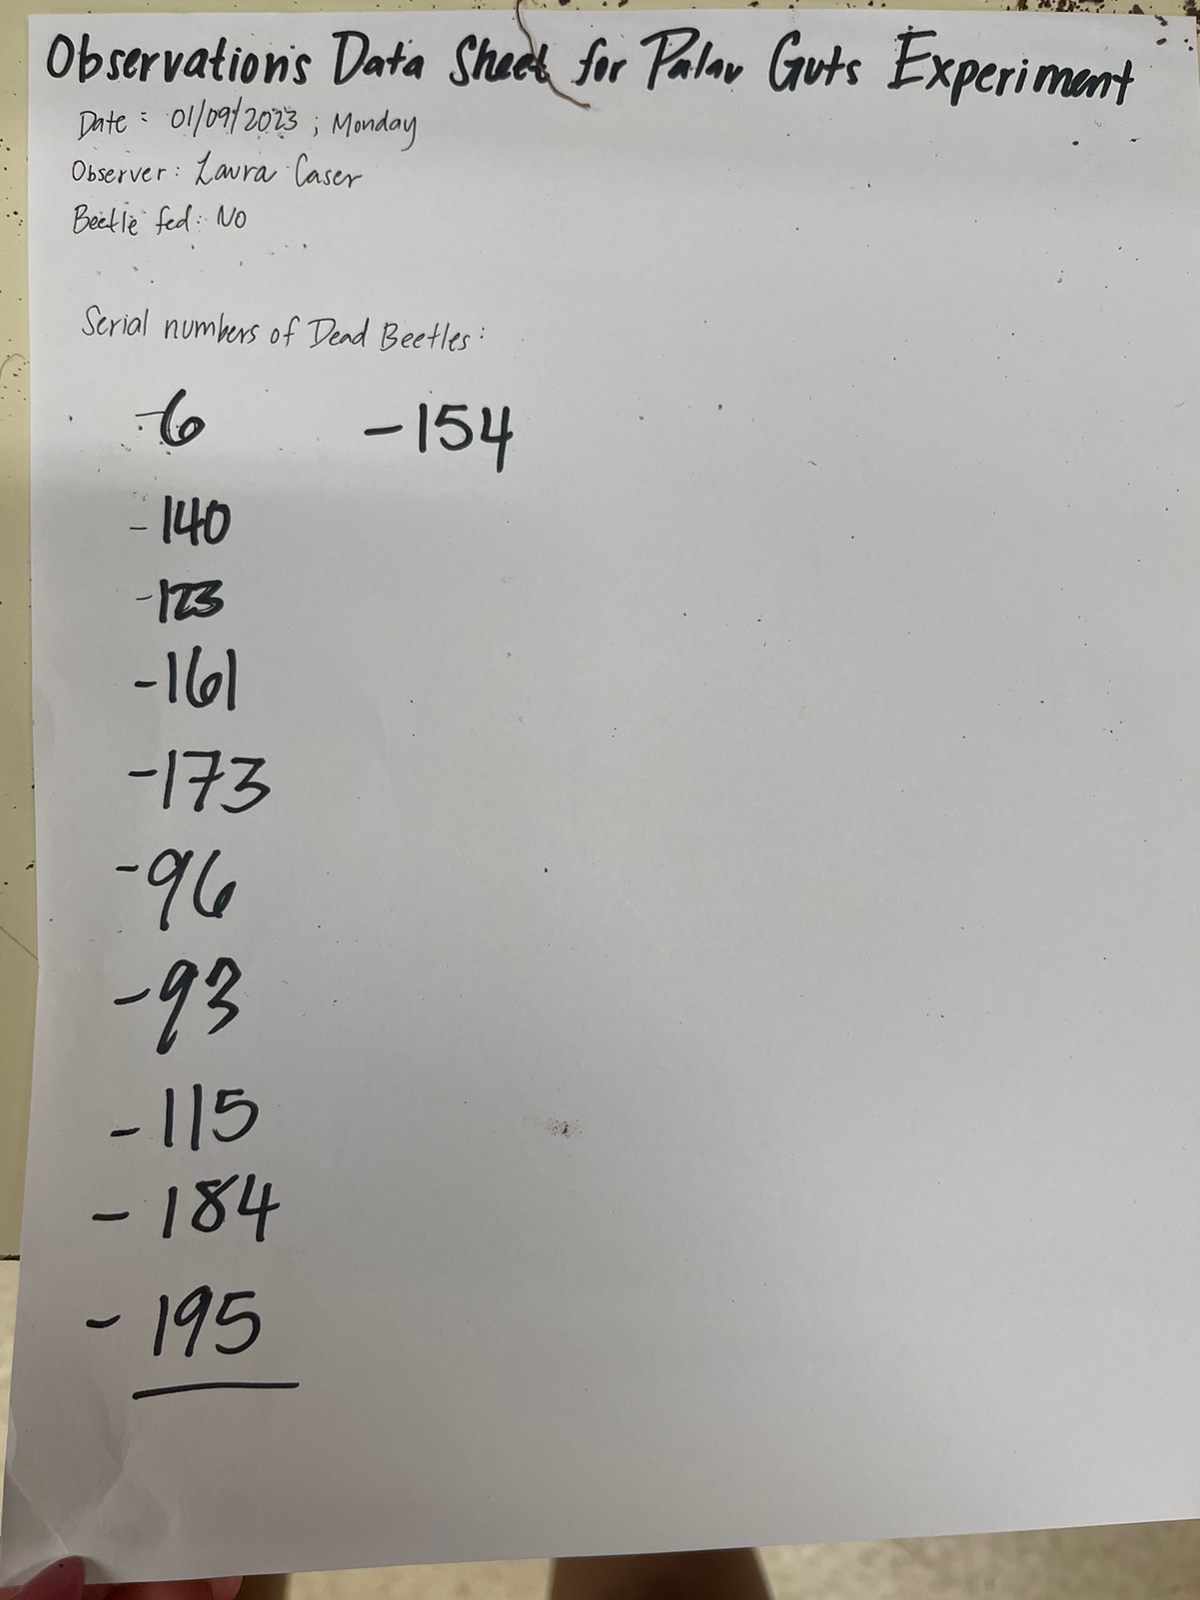 Observations Data Sheet for Palau Guts Experiment
Date: 01/09/2023; Monday
Observer: Laura Caser
Beetle fed: No
Serial numbers of Dead Beetles:
-6
-154
-140
-123
-161
-173
-96
-93
-115
-184
-195